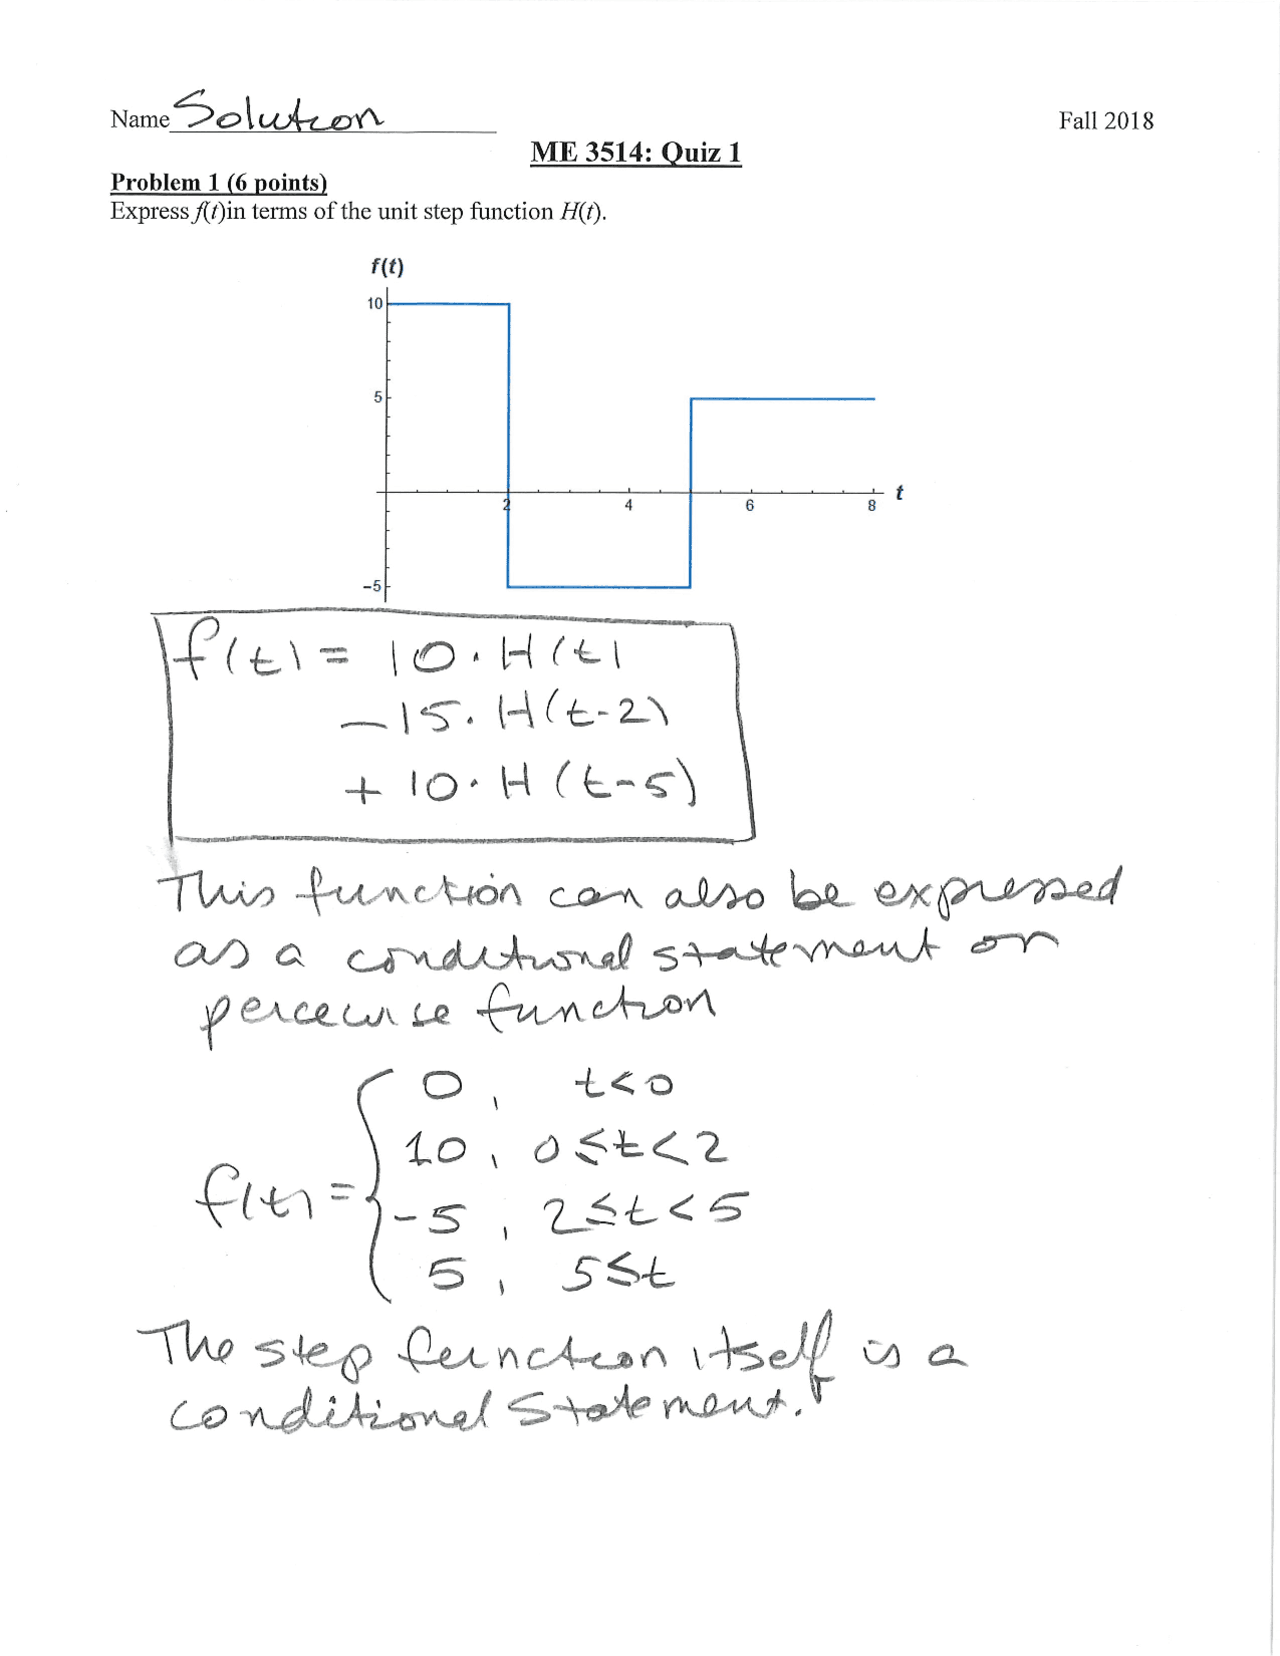 Name Solution Fall 2018
ME 3514: Quiz 1
Problem 1 (6 points)
Express f(t)in terms of the unit step function H(t).
f(t)
10
5
2 4 6 8 t
-5
f(t) = 10 · H(t)
-15 · H(t-2)
+ 10 · H(t-5)
This function can also be expressed
as a conditional statement or
piecewise function
f(t) = { 0, t<0
10, 0≤t<2
-5, 2≤t<5
5, 5≤t
The step function itself is a
conditional statement.